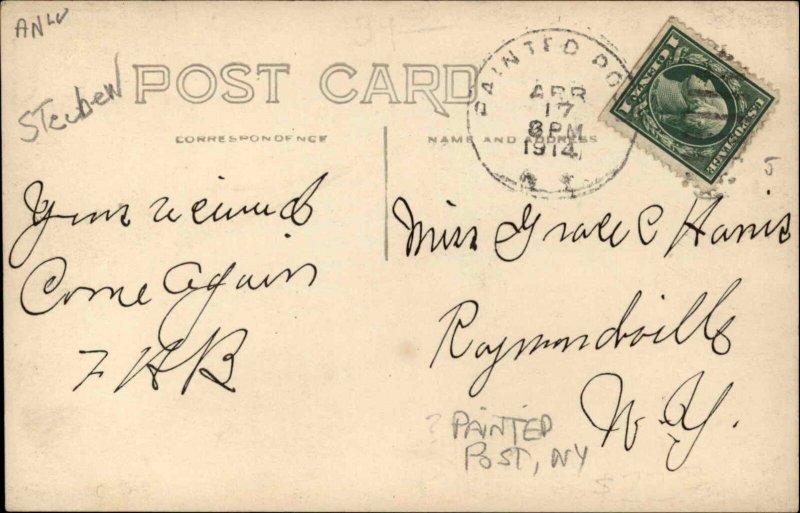 Steuben
POST CARD
CORRESPONDENCE
NAME AND ADDRESS
PAINTED PO
APR
17
8 PM
1914
Yours received
Come Again
F H B
Miss Grace C Harris
Raymondville
N.Y.
? PAINTED
POST, NY